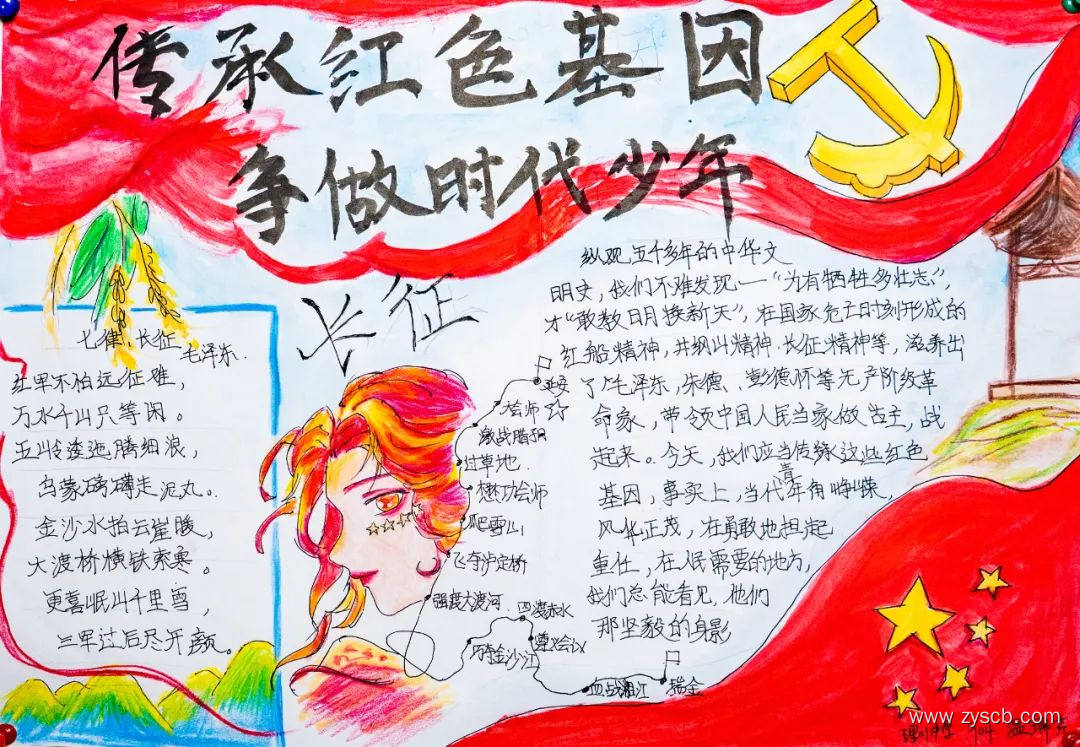 传承红色基因
争做时代少年
长征
七律·长征
毛泽东
红军不怕远征难，
万水千山只等闲。
五岭逶迤腾细浪，
乌蒙磅礴走泥丸。
金沙水拍云崖暖，
大渡桥横铁索寒。
更喜岷山千里雪，
三军过后尽开颜。
纵观五千多年的中华文
明史，我们不难发现一“为有牺牲多壮志”，
才“敢教日月换新天”，在国家危亡时刻形成的
红船精神，井纲山精神、长征精神等，滋养出
了毛泽东，朱德、彭德怀等无产阶级革
命家，带领中国人民当家做主，战
起来。今天，我们应当传承这些红色
基因，事实上，当代青年有峥嵘，
风华正茂，在勇敢地担起
重任，在人民需要的地方，
我们总能看见他们
那坚毅的身影
延安
会师
激战腊子口
过草地
懋功会师
爬雪山
飞夺泸定桥
强渡大渡河
四渡赤水
巧渡金沙江
遵义会议
血战湘江
瑞金
www.zyscb.com